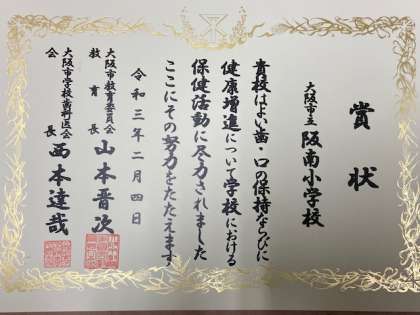 賞状
大阪市立 阪南小学校
貴校はよい歯・口の保持ならびに
健康増進について学校における
保健活動に尽力されました
ここにその努力をたたえます
令和三年二月四日
大阪市教育委員会
教育長 山本晋次
大阪市学校歯科医会
会長 西本達哉